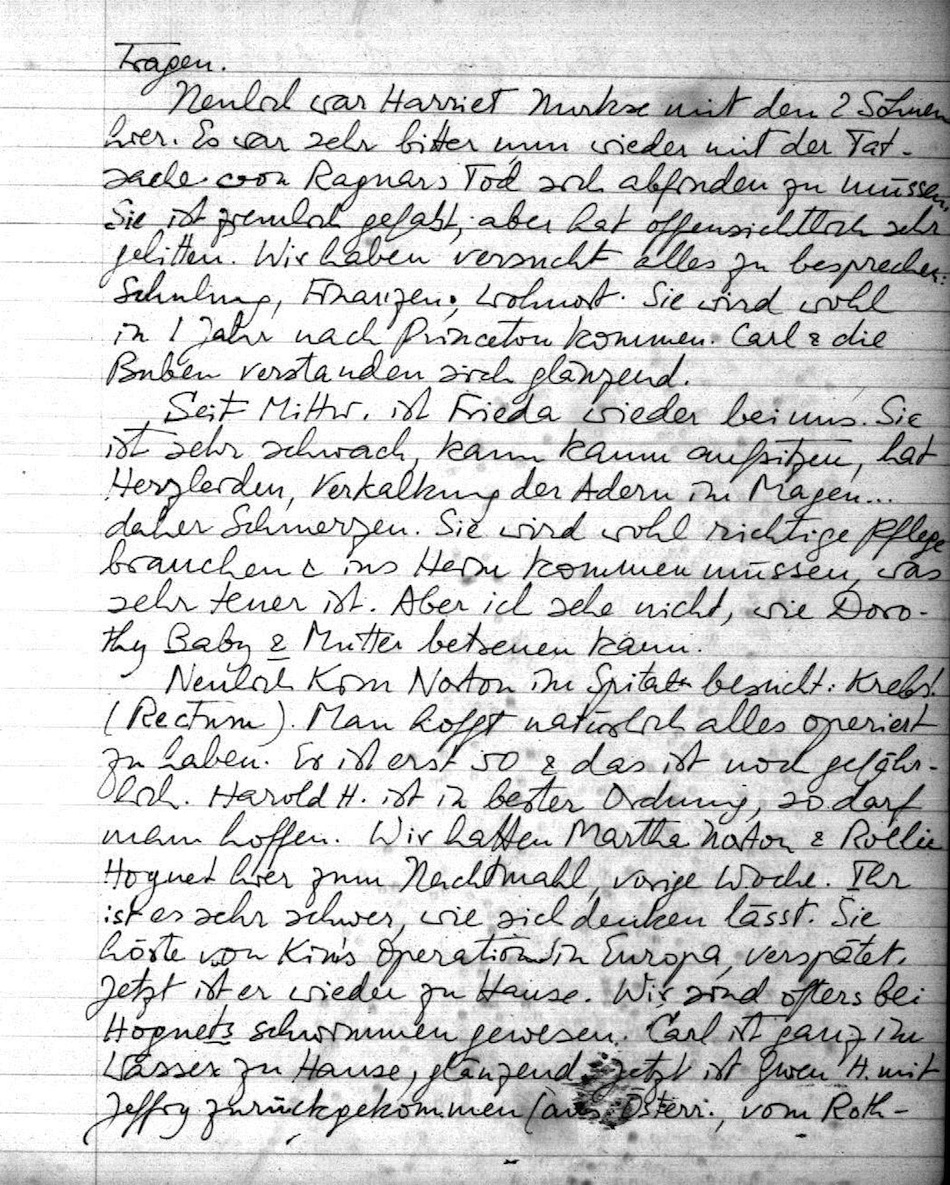 Tragen.
Neulich war Harriet Nurkse mit den 2 Söhnen
hier. Es war sehr bitter nun wieder mit der Tat-
sache von Ragnars Tod sich abfinden zu müssen.
Sie ist ziemlich gefaßt, aber hat offensichtlich sehr
gelitten. Wir haben versucht alles zu besprechen:
Schulung, Finanzen, Wohnort. Sie wird wohl
in 1 Jahr nach Princeton kommen. Carl & die
Buben verstanden sich glänzend.
Seit Mittw. ist Frieda wieder bei uns. Sie
ist sehr schwach, kann kaum aufsitzen, hat
Herzleiden, Verkalkung der Adern im Magen...
daher Schmerzen. Sie wird wohl richtige Pflege
brauchen & ins Heim kommen müssen, was
sehr teuer ist. Aber ich sehe nicht, wie Doro-
thy Baby & Mutter betreuen kann.
Neulich Kim Norton im Spital besucht: Krebs.
(Rectum). Man hofft natürlich alles operiert
zu haben. Er ist erst 50 & das ist noch gefähr-
lich. Harold H. ist in bester Ordnung, so darf
man hoffen. Wir hatten Martha Norton & Rollie
Hognet hier zum Nachtmahl, vorige Woche. Ihr
ist es sehr schwer, wie sich denken lässt. Sie
hörte von Kim's Operation in Europa, verspätet.
Jetzt ist er wieder zu Hause. Wir sind öfters bei
Hognets schwimmen gewesen. Carl ist ganz im
Wasser zu Hause, glänzend. Jetzt ist Gwen H. mit
Jeffry zurückgekommen (aus Österr., vom Roth-